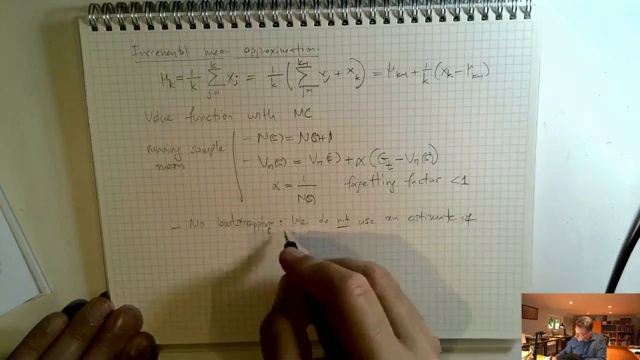 Incremental mean approximation:
μ_k = 1/k Σ_{j=1}^{k} x_j = 1/k ( Σ_{j=1}^{k-1} x_j + x_k ) = μ_{k-1} + 1/k (x_k − μ_{k-1})
Value function with MC
running sample mean
– N(s) = N(s)+1
– V_π(s) = V_π(s) + α (G_t − V_π(s))
α = 1/N(s) forgetting factor <1
– No bootstrapping: We do not use an estimate of